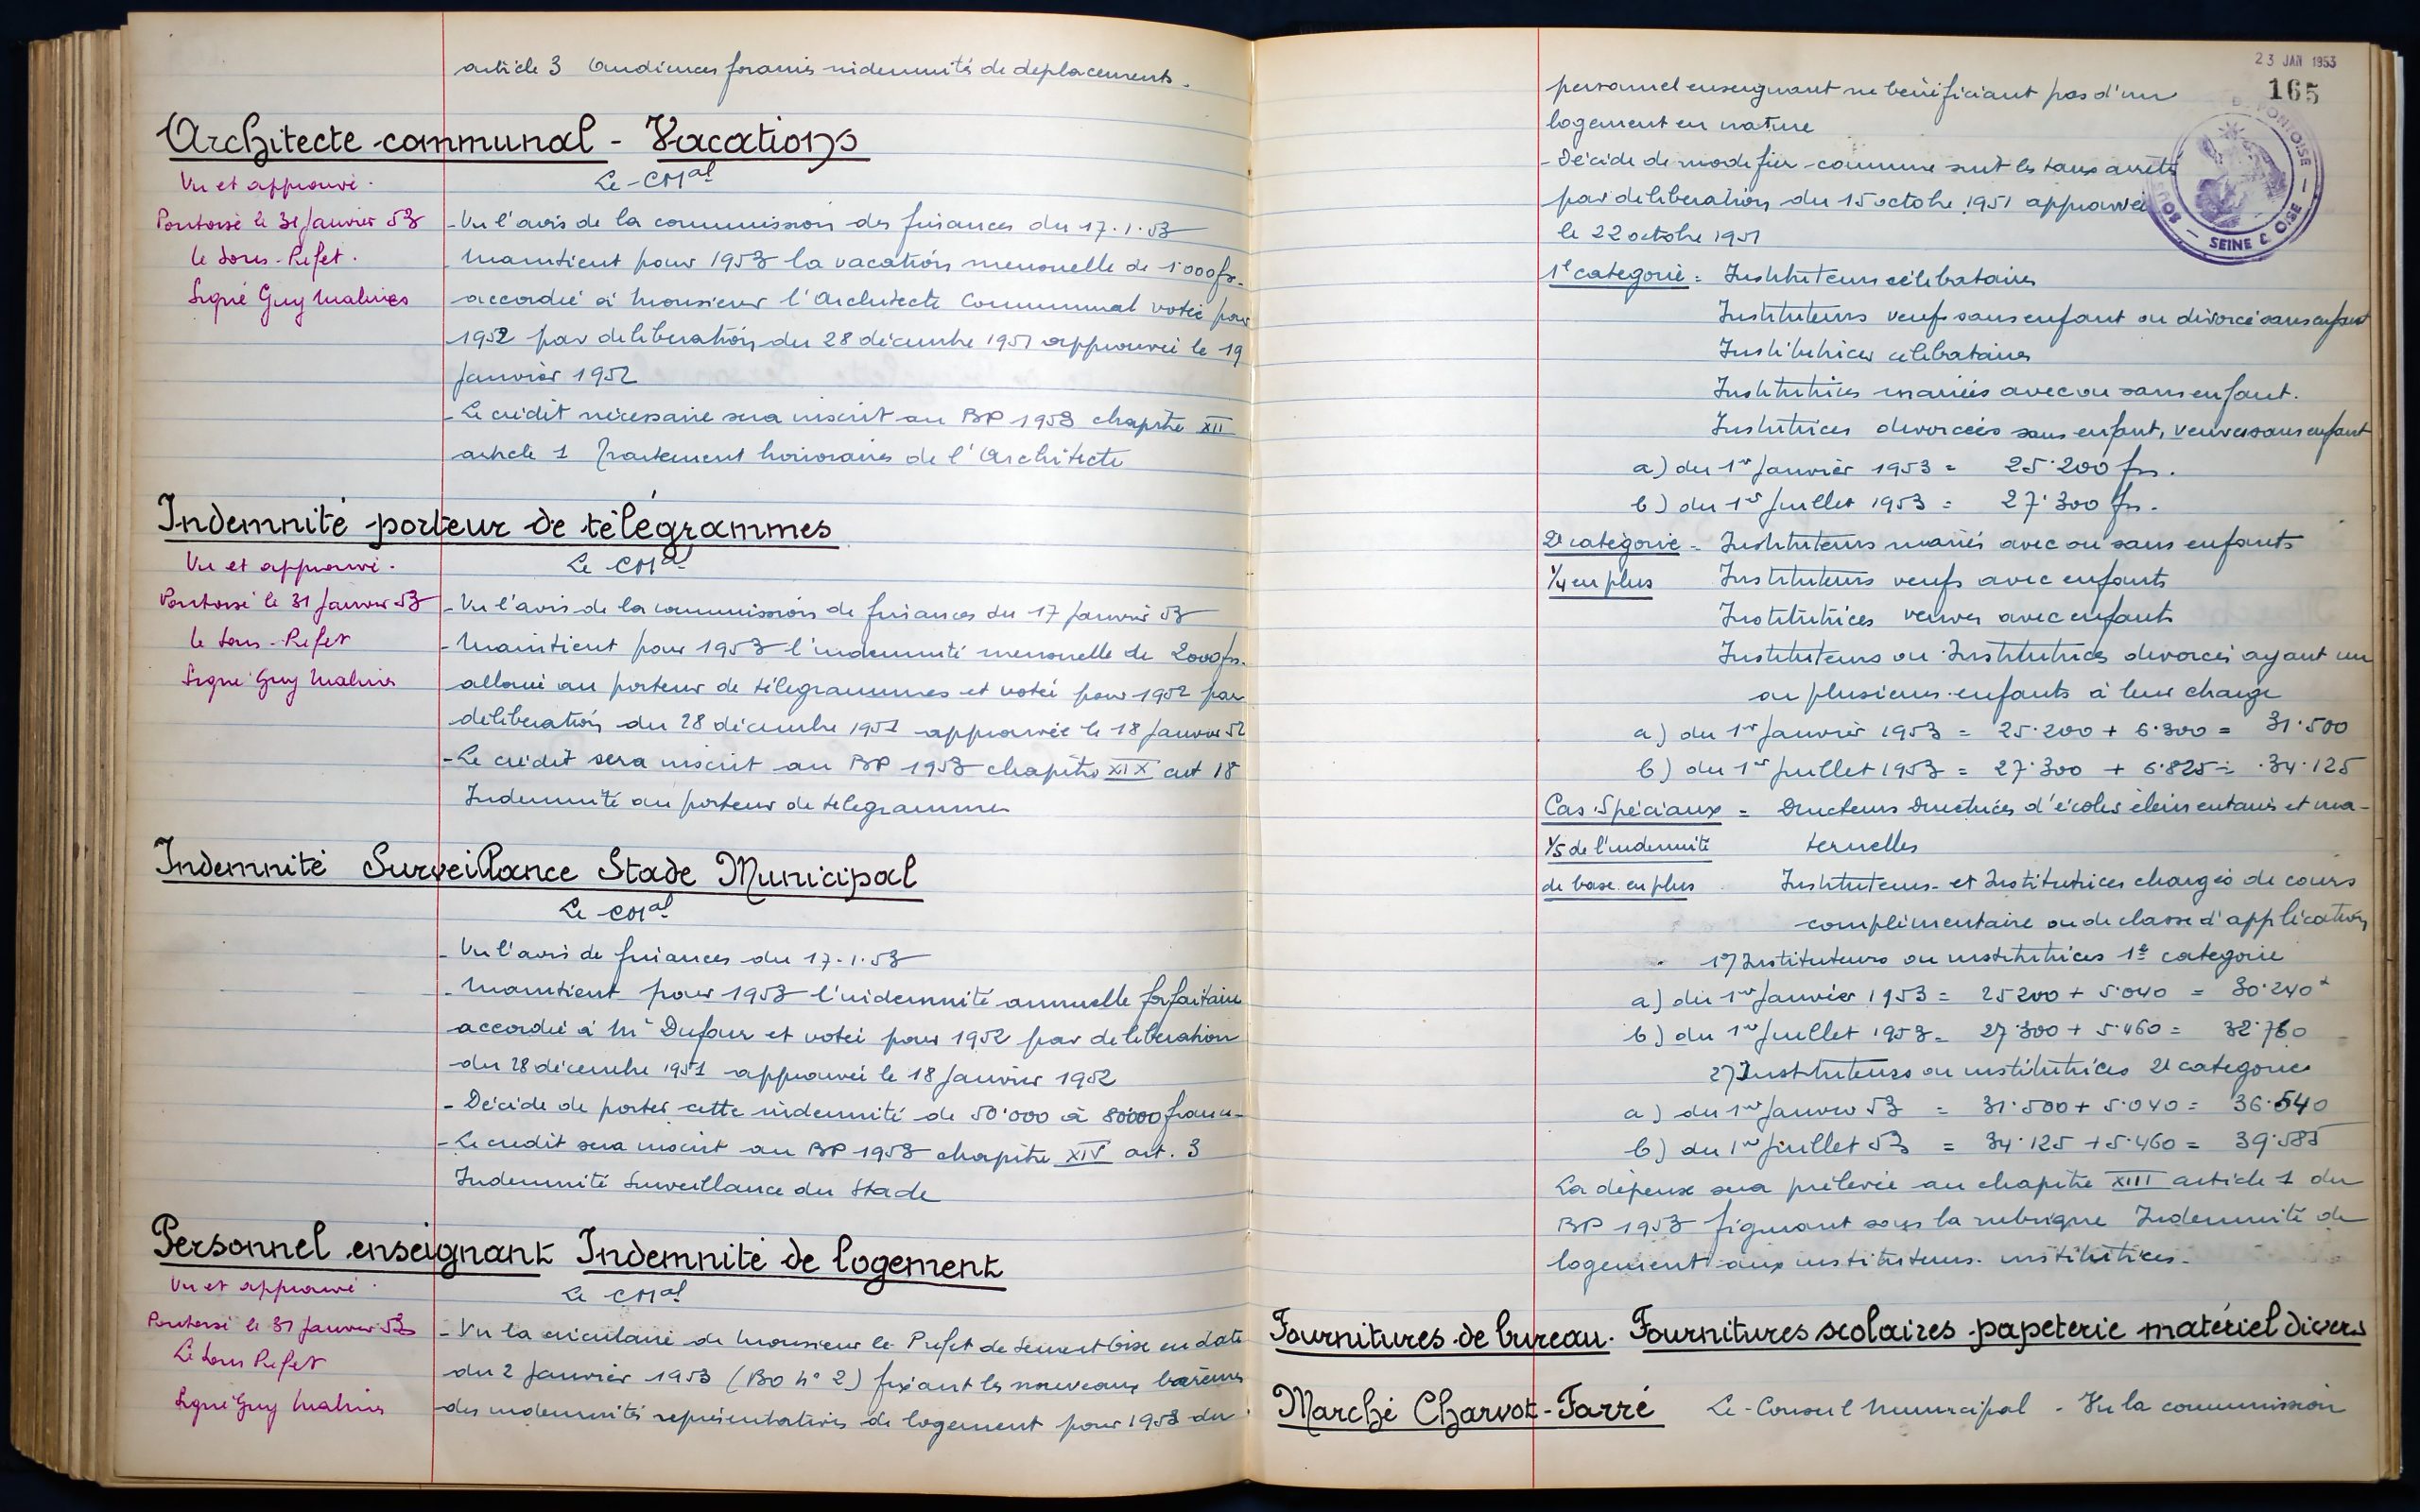 article 3 Audiences foraines indemnités de déplacements.
Architecte communal - Vacations
Vu et approuvé.
Pontoise le 31 Janvier 53
le Sous-Prefet.
Signé Guy
Le CMal
- Vu l'avis de la commission des finances du 17.1.53
- Maintient pour 1953 la vacation mensuelle de 1000 frs.
accordée à Monsieur l'Architecte Communal votée pour
1952 par deliberation du 28 décembre 1951 approuvée le 19
Janvier 1952
- Le crédit nécessaire sera inscrit au BP 1953 chapitre XII
article 1 Traitement honoraires de l'Architecte
Indemnité porteur de télégrammes
Vu et approuvé.
Pontoise le 31 Janvier 53
le Sous-Prefet
Signé Guy
Le CMal
- Vu l'avis de la commission de finances du 17 Janvier 53
- Maintient pour 1953 l'indemnité mensuelle de 2000 frs.
allouée au porteur de télegrammes et votée pour 1952 par
déliberation du 28 décembre 1951 approuvée le 18 Janvier 52
- Le crédit sera inscrit au BP 1953 chapitre XIX art 18
Indemnité au porteur de telegrammes
Indemnité Surveillance Stade Municipal
Le CMal
- Vu l'avis de finances du 17.1.53
- Maintient pour 1953 l'indemnité annuelle forfaitaire
accordée à Mr Dufour et votée pour 1952 par deliberation
du 28 décembre 1951 approuvée le 18 Janvier 1952
- Décide de porter cette indemnité de 50.000 à 80000 francs
- Le credit sera inscrit au BP 1953 chapitre XIV art. 3
Indemnité Surveillance du Stade
Personnel enseignant Indemnité de logement
Vu et approuvé.
Pontoise le 31 Janvier 53
Le Sous Prefet
Signé Guy
Le CMal
- Vu la circulaire de Monsieur le Préfet de Seine et Oise en date
du 2 Janvier 1953 (BO N° 2) fixant les nouveaux barèmes
des indemnités représentatives de logement pour 1953 du
23 JAN 1953
165
PONTOISE
SOUS
SEINE & OISE
personnel enseignant ne bénéficiant pas d'un
logement en nature
- Décide de modifier comme suit les taux arrêtés
par deliberation du 15 octobre 1951 approuvée
le 22 octobre 1951
1e categorie = Instituteurs célibataires
Instituteurs veufs sans enfant ou divorcé sans enfant
Institutrices célibataires
Institutrices mariées avec ou sans enfant.
Institutrices divorcées sans enfant, veuves sans enfant
a) du 1er Janvier 1953 = 25.200 frs.
b) du 1er Juillet 1953 = 27.300 frs.
2e catégorie - Instituteurs mariés avec ou sans enfants
1/4 en plus Instituteurs veufs avec enfants
Institutrices veuves avec enfants
Instituteurs ou Institutrices divorcés ayant un
ou plusieurs enfants à leur charge
a) du 1er Janvier 1953 = 25.200 + 6.300 = 31.500
b) du 1er Juillet 1953 = 27.300 + 6.825 = 34.125
Cas Spéciaux = Directeurs Directrices d'écoles élémentaires et ma-
1/5 de l'indemnité ternelles
de base en plus Instituteurs et Institutrices chargés de cours
complémentaire ou de classe d'application
1°) Instituteurs ou institutrices 1e categorie
a) du 1er Janvier 1953 = 25200 + 5.040 = 30.240
b) du 1er Juillet 1953 = 27.300 + 5.460 = 32.760
2°) Instituteurs ou institutrices 2e categorie
a) du 1er Janvier 53 = 31.500 + 5.040 = 36.540
b) du 1er Juillet 53 = 34.125 + 5.460 = 39.585
La dépense sera prélevée au chapitre XIII article 1 du
BP 1953 figurant sous la rubrique Indemnité de
logement aux instituteurs. institutrices.
Fournitures de bureau. Fournitures scolaires papeterie matériel divers
Marché Charvot-Farré Le Conseil Municipal - Vu la commission